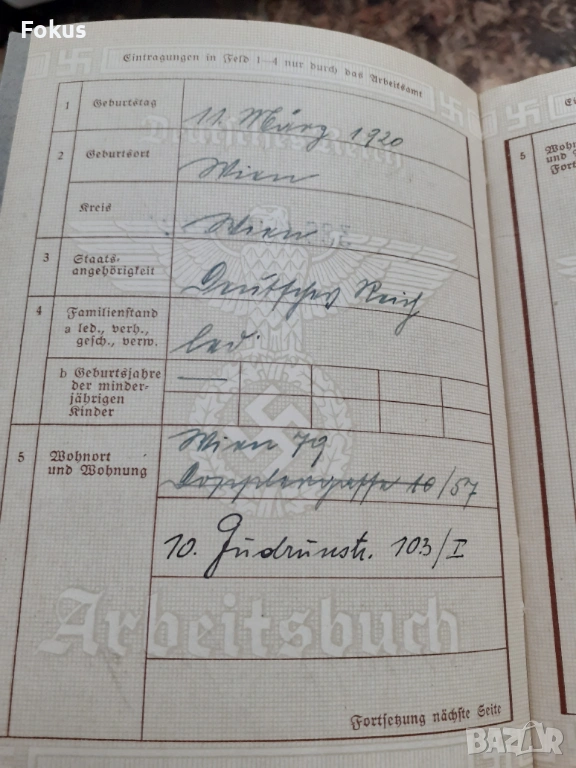 Fokus
Eintragungen in Feld 1–4 nur durch das Arbeitsamt
1 Geburtstag 11. März 1920
Deutsches Reich
2 Geburtsort Wien
Kreis Wien
3 Staats-
angehörigkeit Deutsches Reich
4 Familienstand
a led., verh.,
gesch., verw. led.
b Geburtsjahre
der minder-
jährigen
Kinder —
5 Wohnort
und Wohnung Wien 79
Dopplergasse 10/57
10. Gudrunstr. 103/I
Arbeitsbuch
Fortsetzung nächste Seite
5
BAZAR